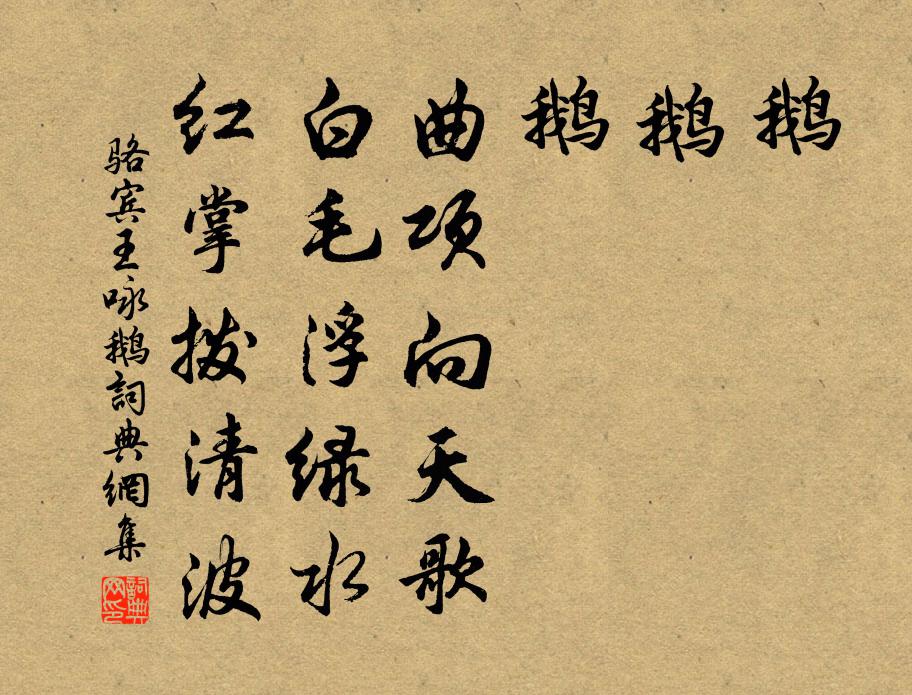 鹅
鹅
鹅
曲项向天歌
白毛浮绿水
红掌拨清波
骆宾王咏鹅詞典網集
詞典网印